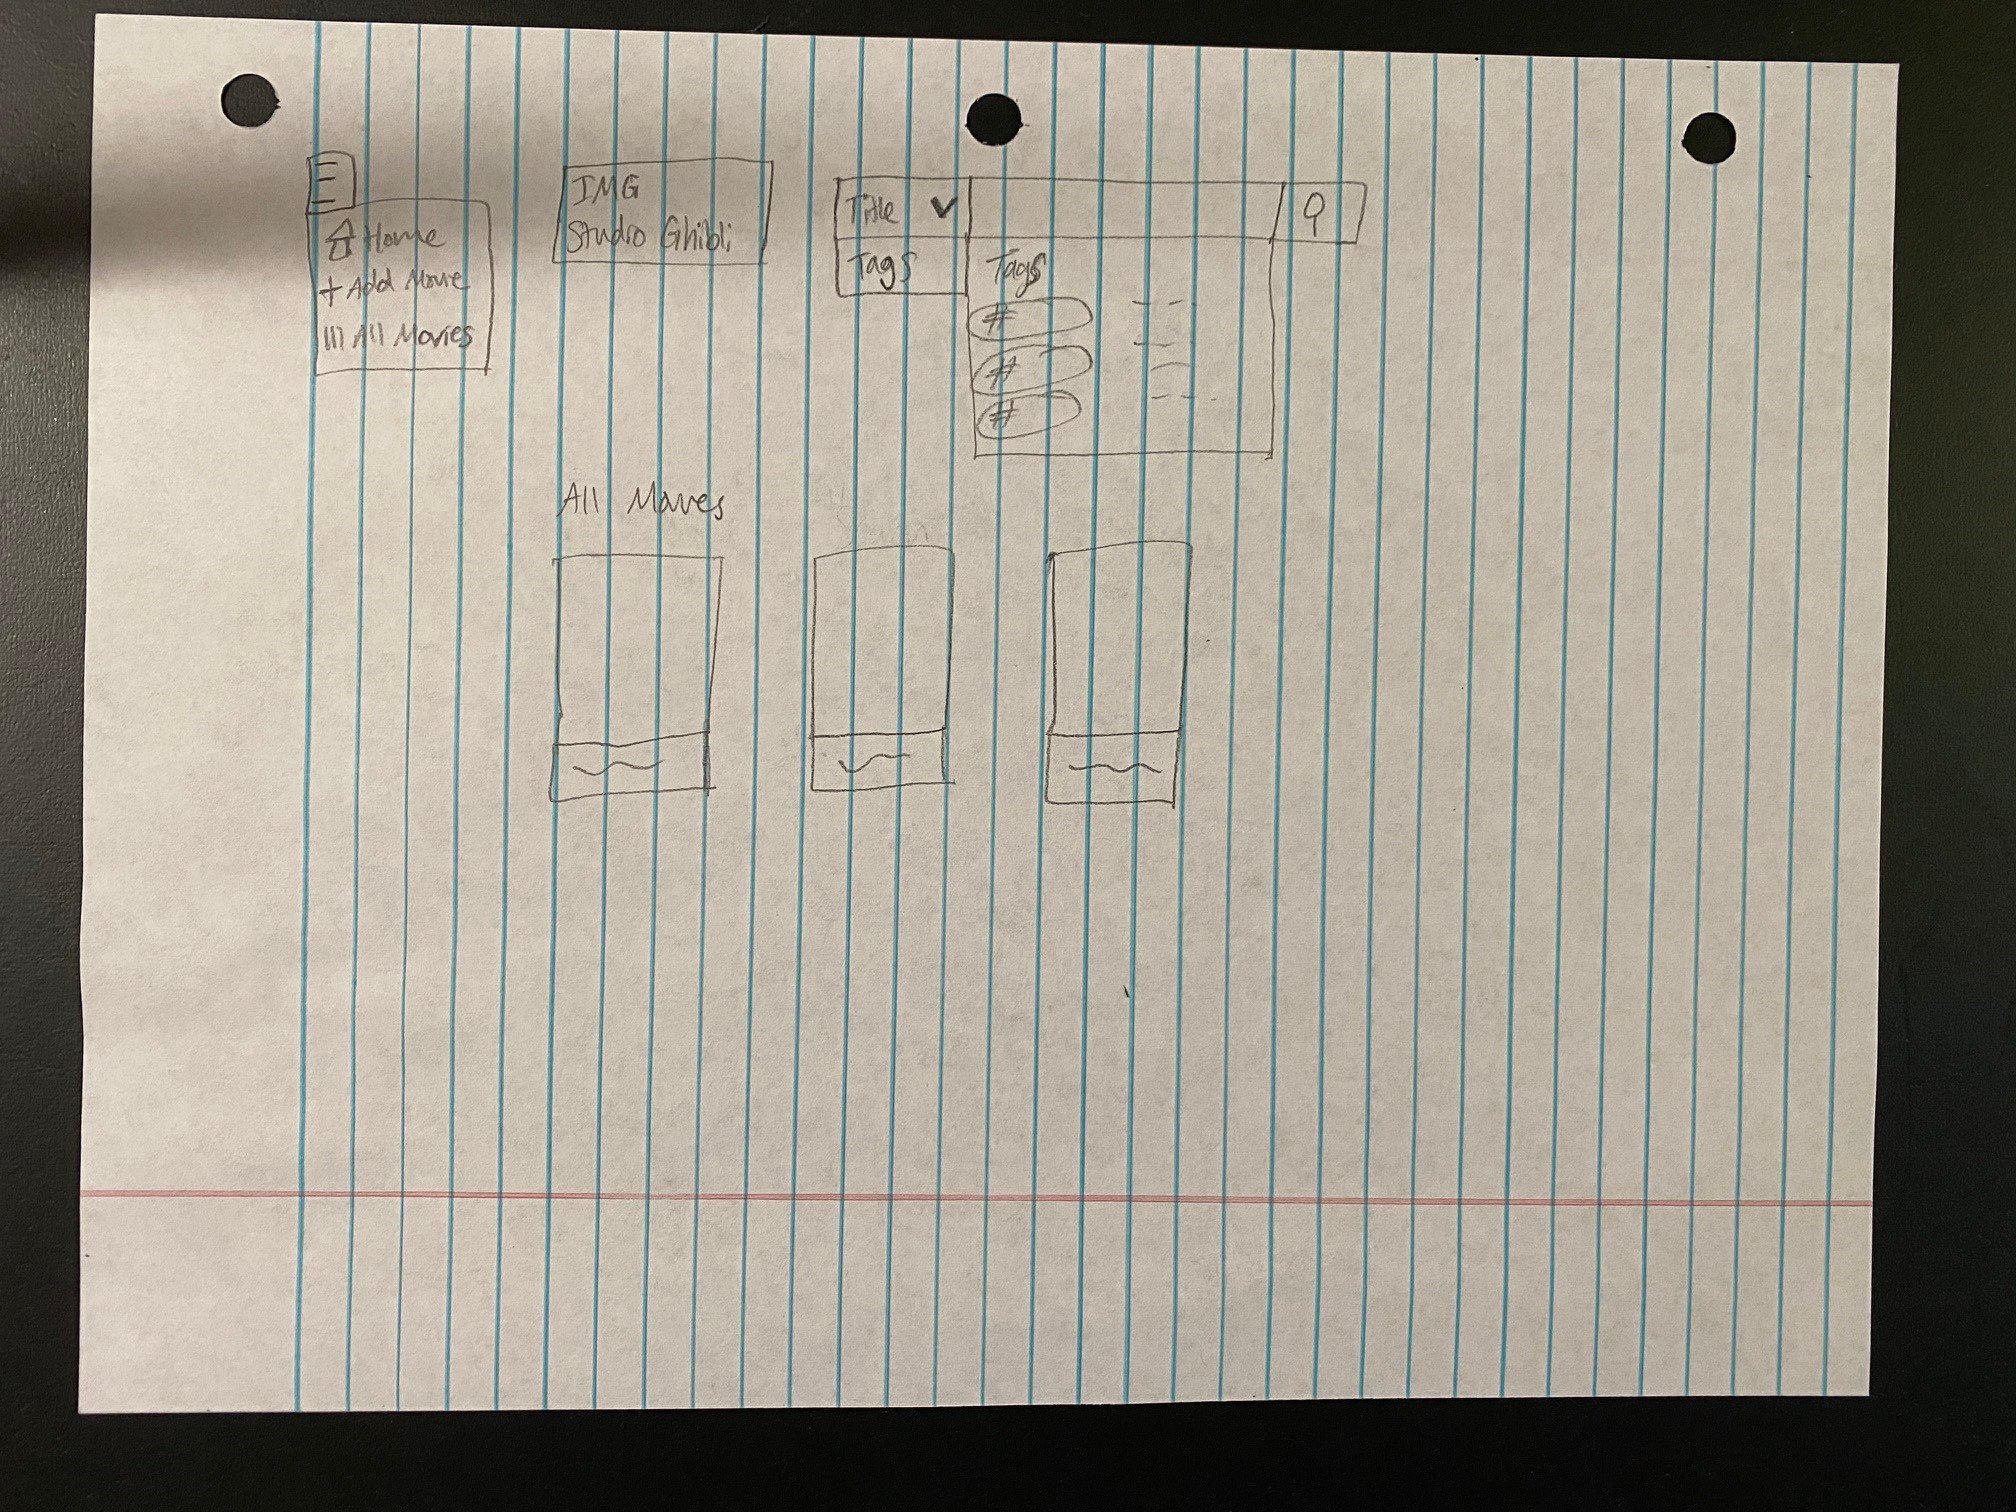 Home
+ Add Movie
All Movies
IMG
Studio Ghibli
Title
Tags
Tags
#
#
#
All Movies